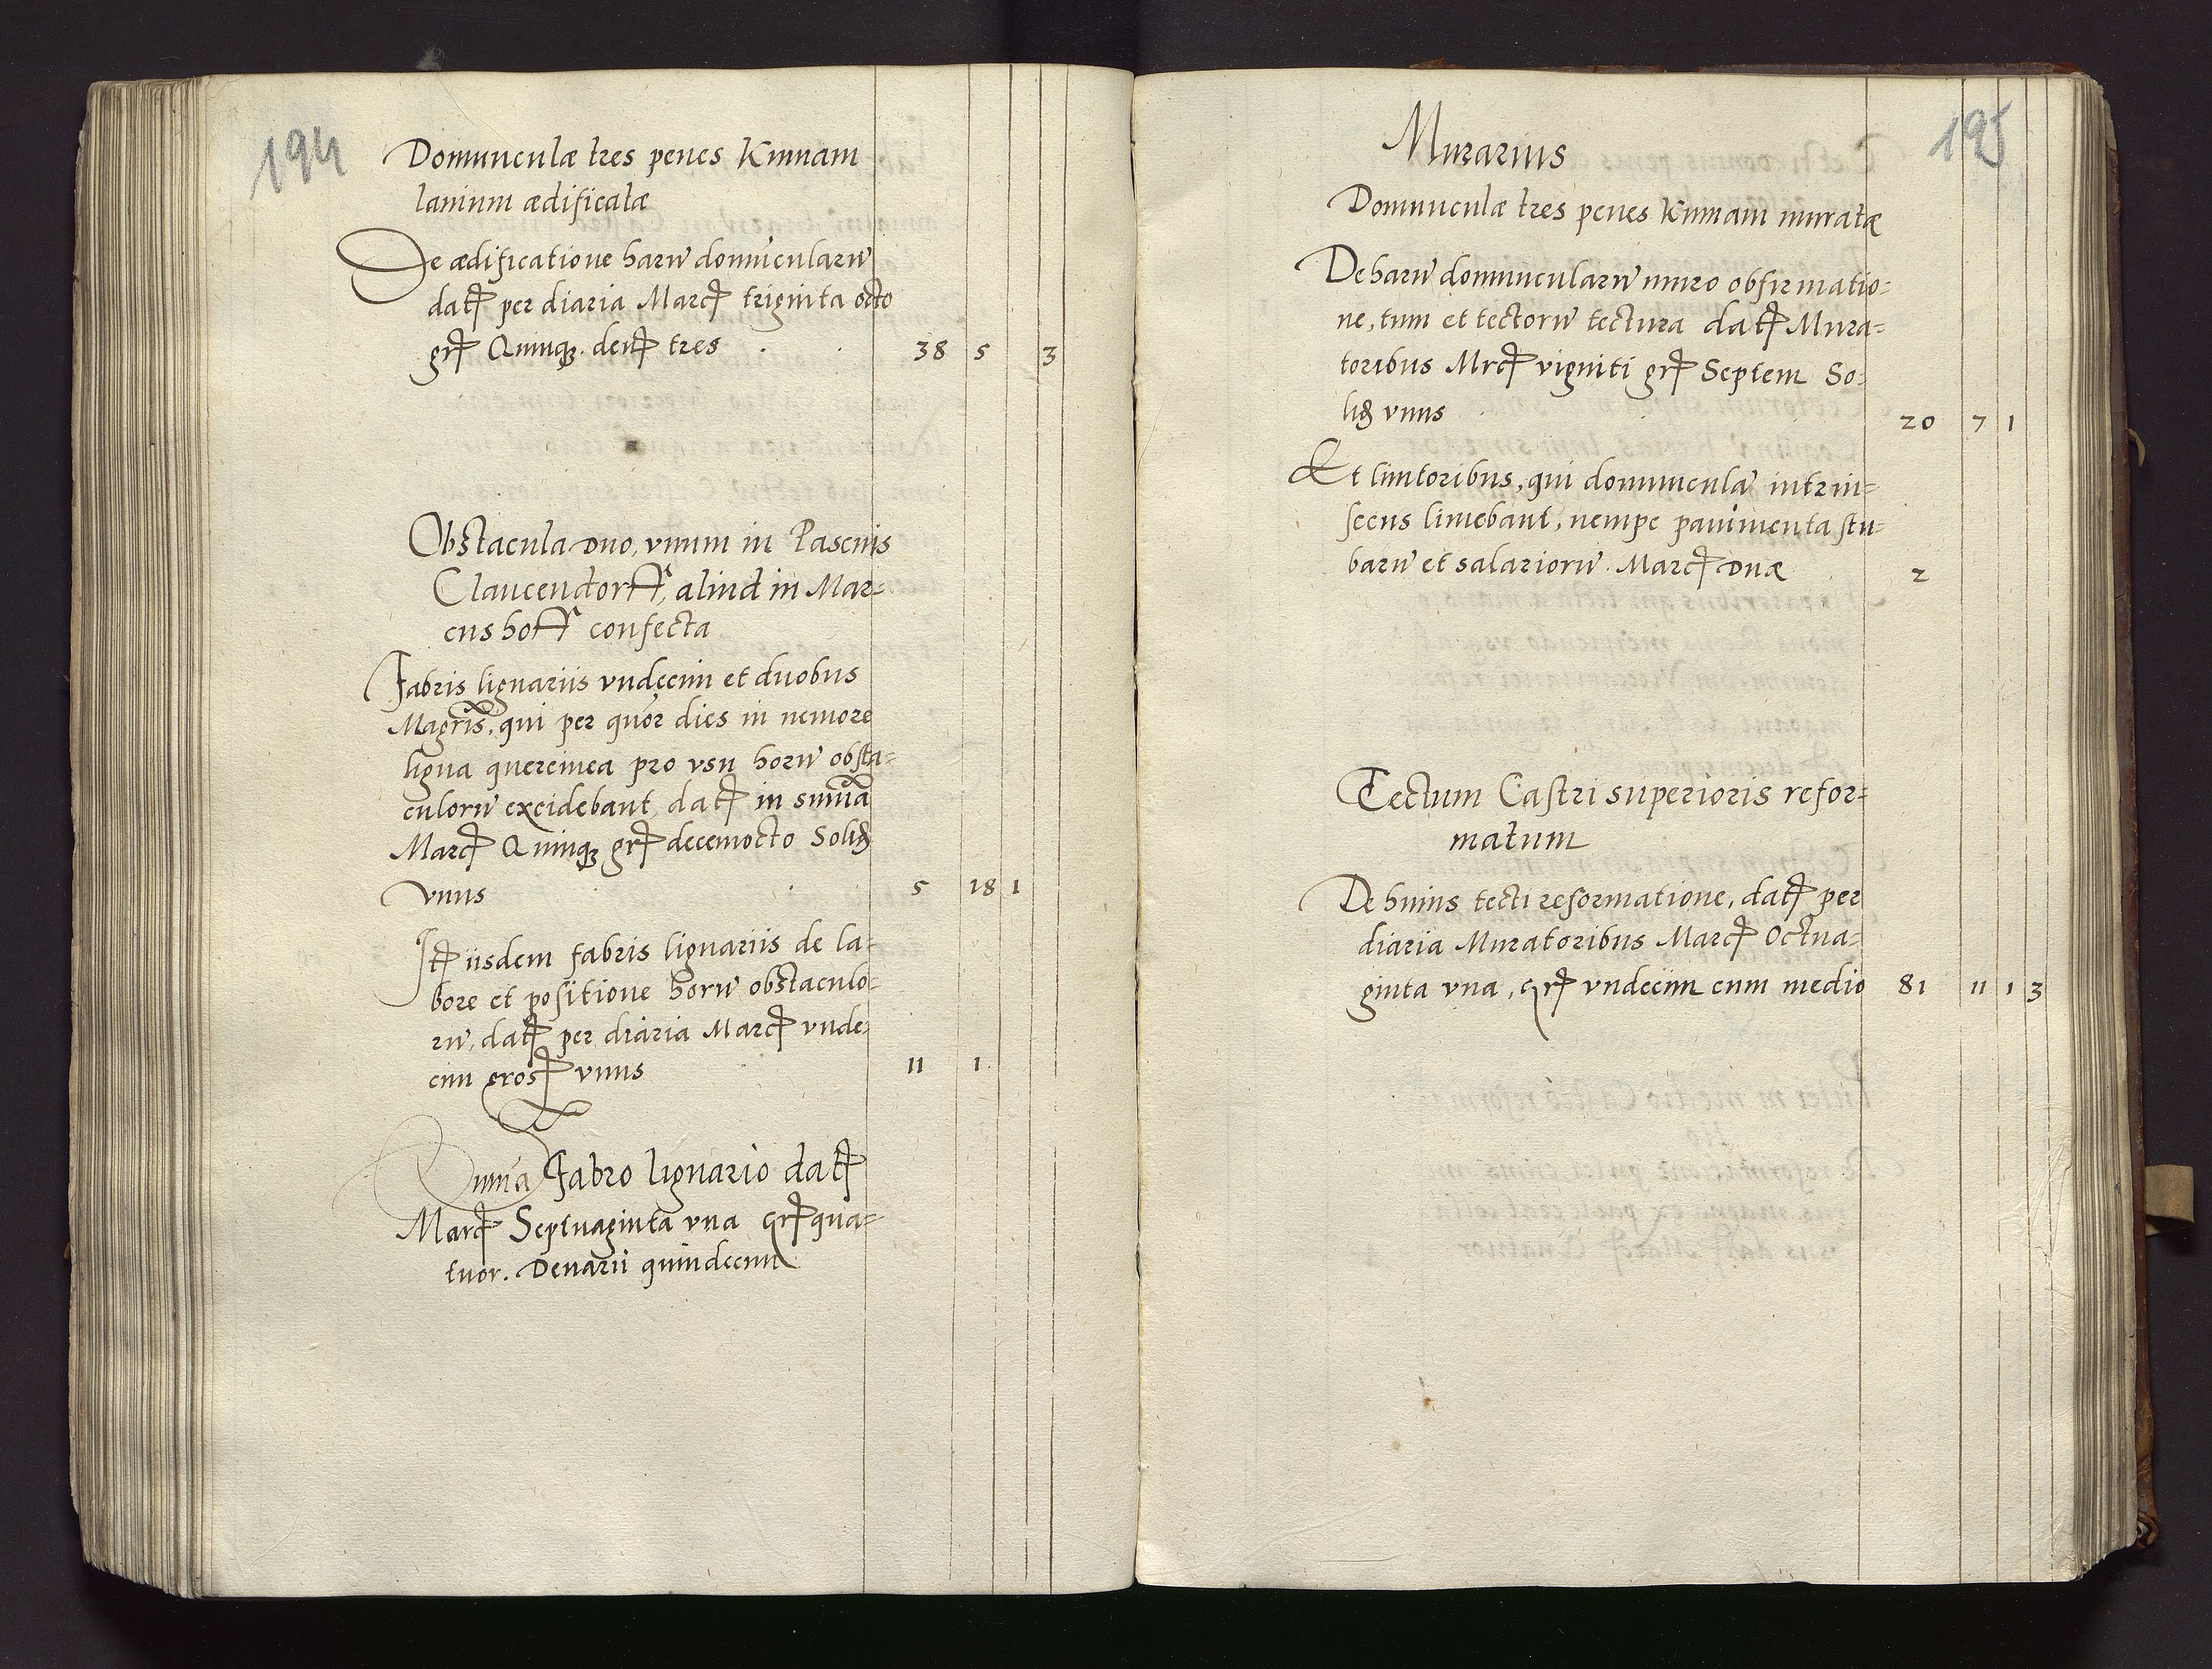 194
Domunculæ tres penes Kumam
lanium ædificatæ
De ædificatione harū domūcularū
datꝭ per diaria Marcꝭ triginta octo
grꝭ Quinqꝫ denꝭ tres . . 38 5 3
Obstacula duo, vnum in Pascuis
Claucendorff, aliud in Mar=
cushoff confecta
Fabris lignariis vndecim et duobus
Magris̄, qui per quōr dies in nemore
ligna quercinea pro vsu horū obsta=
culorū excidebant, datꝭ in sum̄a
Marcꝭ Quinqꝫ grꝭ decemocto Solidꝭ
vnus . . 5 18 1
Itꝭ iisdem fabris lignariis de la=
bore et positione horū obstaculo=
rū, datꝭ per diaria Marcꝭ vnde=
cim grosꝭ vnus . 11 1.
Sum̄a Fabro lignario datꝭ
Marcꝭ Septuaginta vna grꝭ qua=
tuor. Denarii quindecim
195
Murarius
Domunculæ tres penes Kumam muratæ
De harū domuncularū muro obfirmatio=
ne, tum et tectorū tectura datꝭ Mura=
toribus Mrcꝭ viginti grꝭ Septem So=
lidꝭ vnus . . 20 7 1
Et limtoribus, qui domunculā intrin=
secus limebant, nempe pauimenta stu=
barū et salariorū. Marcꝭ duæ 2
Tectum Castri superioris refor=
matum
De huius tecti reformatione, datꝭ per
diaria Muratoribus Marcꝭ Octua=
ginta vna, grꝭ vndecim cum medio 81 11 1 3